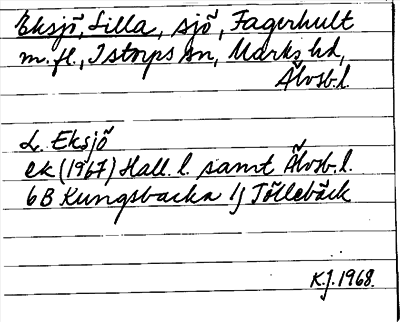 Eksjö, Lilla, sjö, Fagerhult
m.fl., Istorps sn, Marks hd,
Älvsb.l.
L. Eksjö
ek (1967) Hall. l. samt Älvsb. l.
6B Kungsbacka 1j Töllebäck
K.J. 1968.